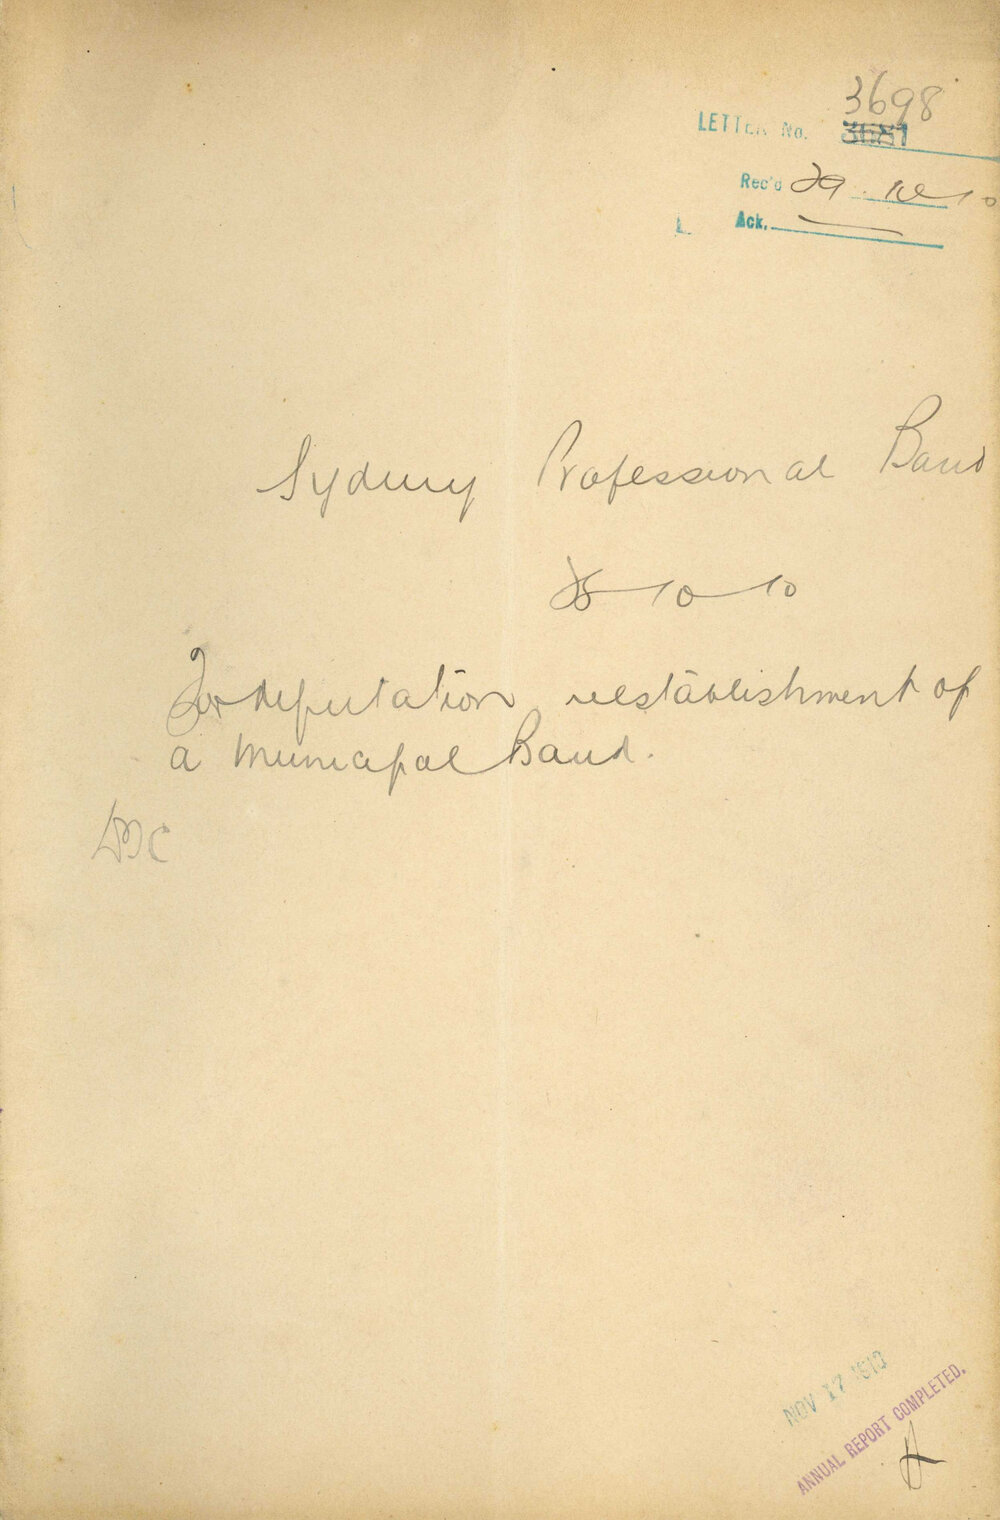 3698
LETTER No. 3681
Rec'd 29. 10 10
Ack.
Sydney Professional Band
28 10 10
For deputation re establishment of
a Municipal Band.
NOV 17 1910
ANNUAL REPORT COMPLETED.